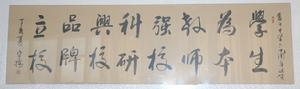 學生
為本
教師
強校
科研
興校
品牌
立校
丁亥夏